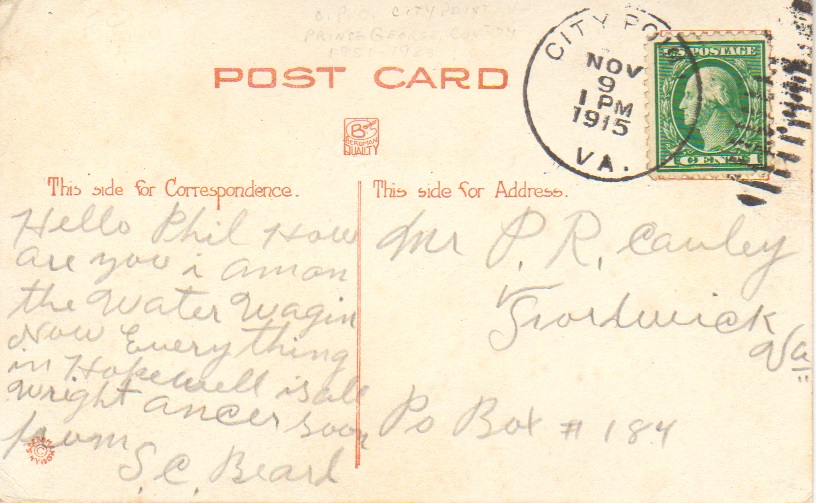 CITY POINT
PRINCE GEORGE COUNTY
POST CARD
CITY POINT
NOV
9
1 PM
1915
VA.
U.S. POSTAGE
1 CENTS 1
BERGMAN
QUALITY
This side for Correspondence.
This side for Address.
Hello Phil How
are you i am on
the Water Wagin
Now Every thing
in Hopewell is all
wright ancer soon
from
S.C. Beard
Mr P. R. Cauley
Va
Po Box # 184